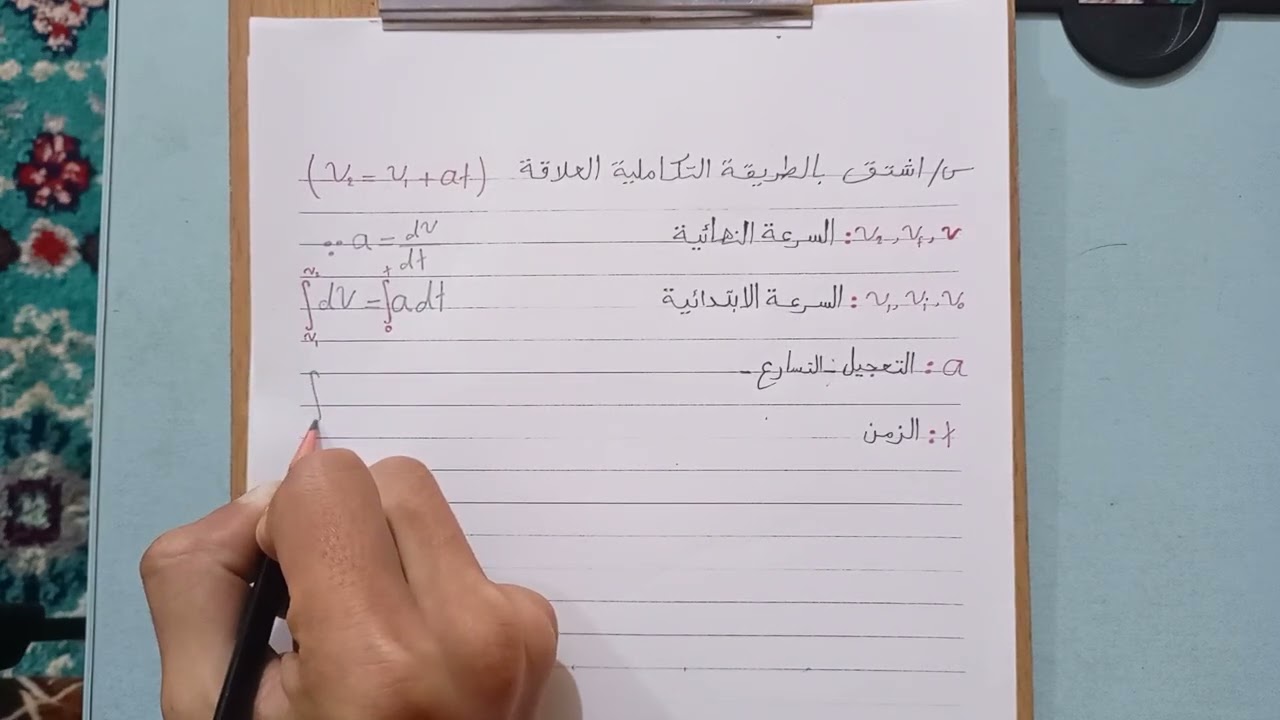 س/ اشتق بالطريقة التكاملية العلاقة (v₂ = v₁ + at)
v, v_f, v₂ : السرعة النهائية
∵ a = dv/dt
v₀, v_i, v₁ : السرعة الابتدائية
∫_{v₁}^{v₂} dv = ∫_0^t a dt
a : التعجيل - التسارع -
t : الزمن
∫